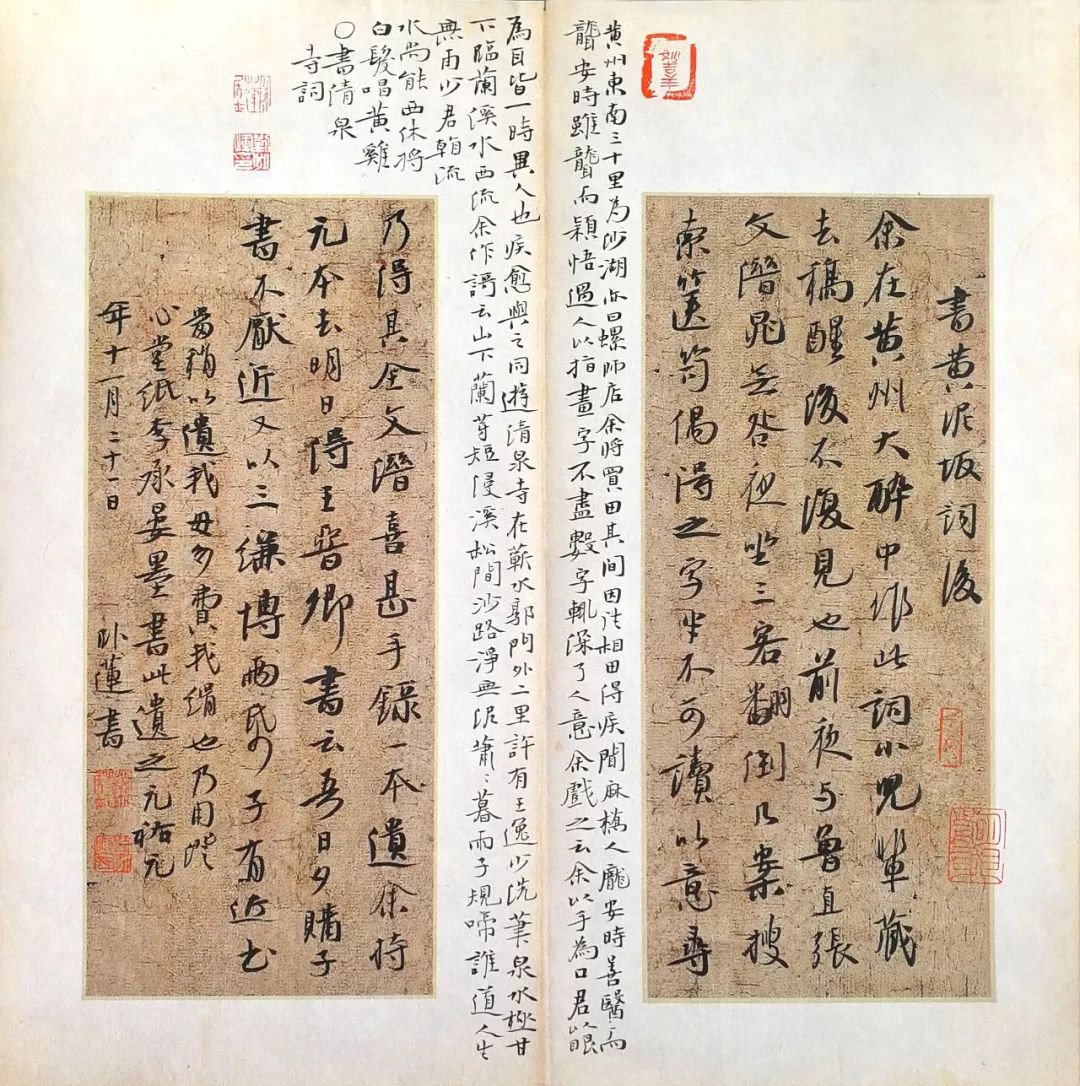 書黄泥坂詞後
余在黄州大醉中作此詞小兒輩藏
去稿醒後不復見也前夜与魯直張
文潛晁无咎夜坐三客翻倒几案搜
索篋笥偶得之字半不可讀以意尋
妙吉羊
黄州東南三十里為沙湖亦曰螺師店余將買田其間因往相田得疾聞麻橋人龐安時善醫而
聾安時雖聾而穎悟過人以指畫字不盡數字輒深了人意余戲之云余以手為口君以眼
為耳皆一時異人也疾愈與之同遊清泉寺在蘄水郭門外二里許有王逸少洗筆泉水極甘
下臨蘭溪水西流余作謌云山下蘭芽短浸溪松間沙路淨無泥蕭〻暮雨子規啼誰道人生
無再少君看流
水尚能西休將
白髮唱黄雞
〇書清泉
寺詞
乃得其全文潛喜甚手録一本遺余持
元本去明日得王晉卿書云吾日夕購子
書不厭近又以三縑博兩紙子有近書
當稍以遺我毋多費我絹也乃用澄
心堂紙李承晏墨書此遺之元祐元
年十一月二十一日
卧蓮書